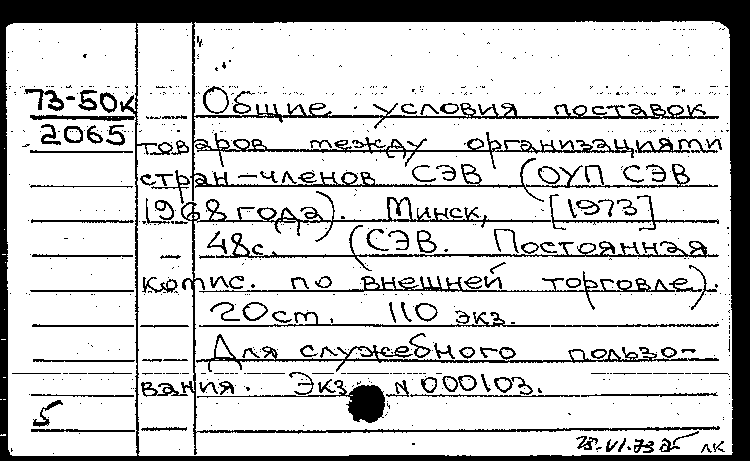 73-50к Общие условия поставок
2065 товаров между организациями
стран-членов СЭВ (ОУП СЭВ
1968 года). Минск, [1973]
48с. (СЭВ. Постоянная
комис. по внешней торговле).
20см. 110 экз.
Для служебного пользо-
вания. Экз. N 000103.
5
лк